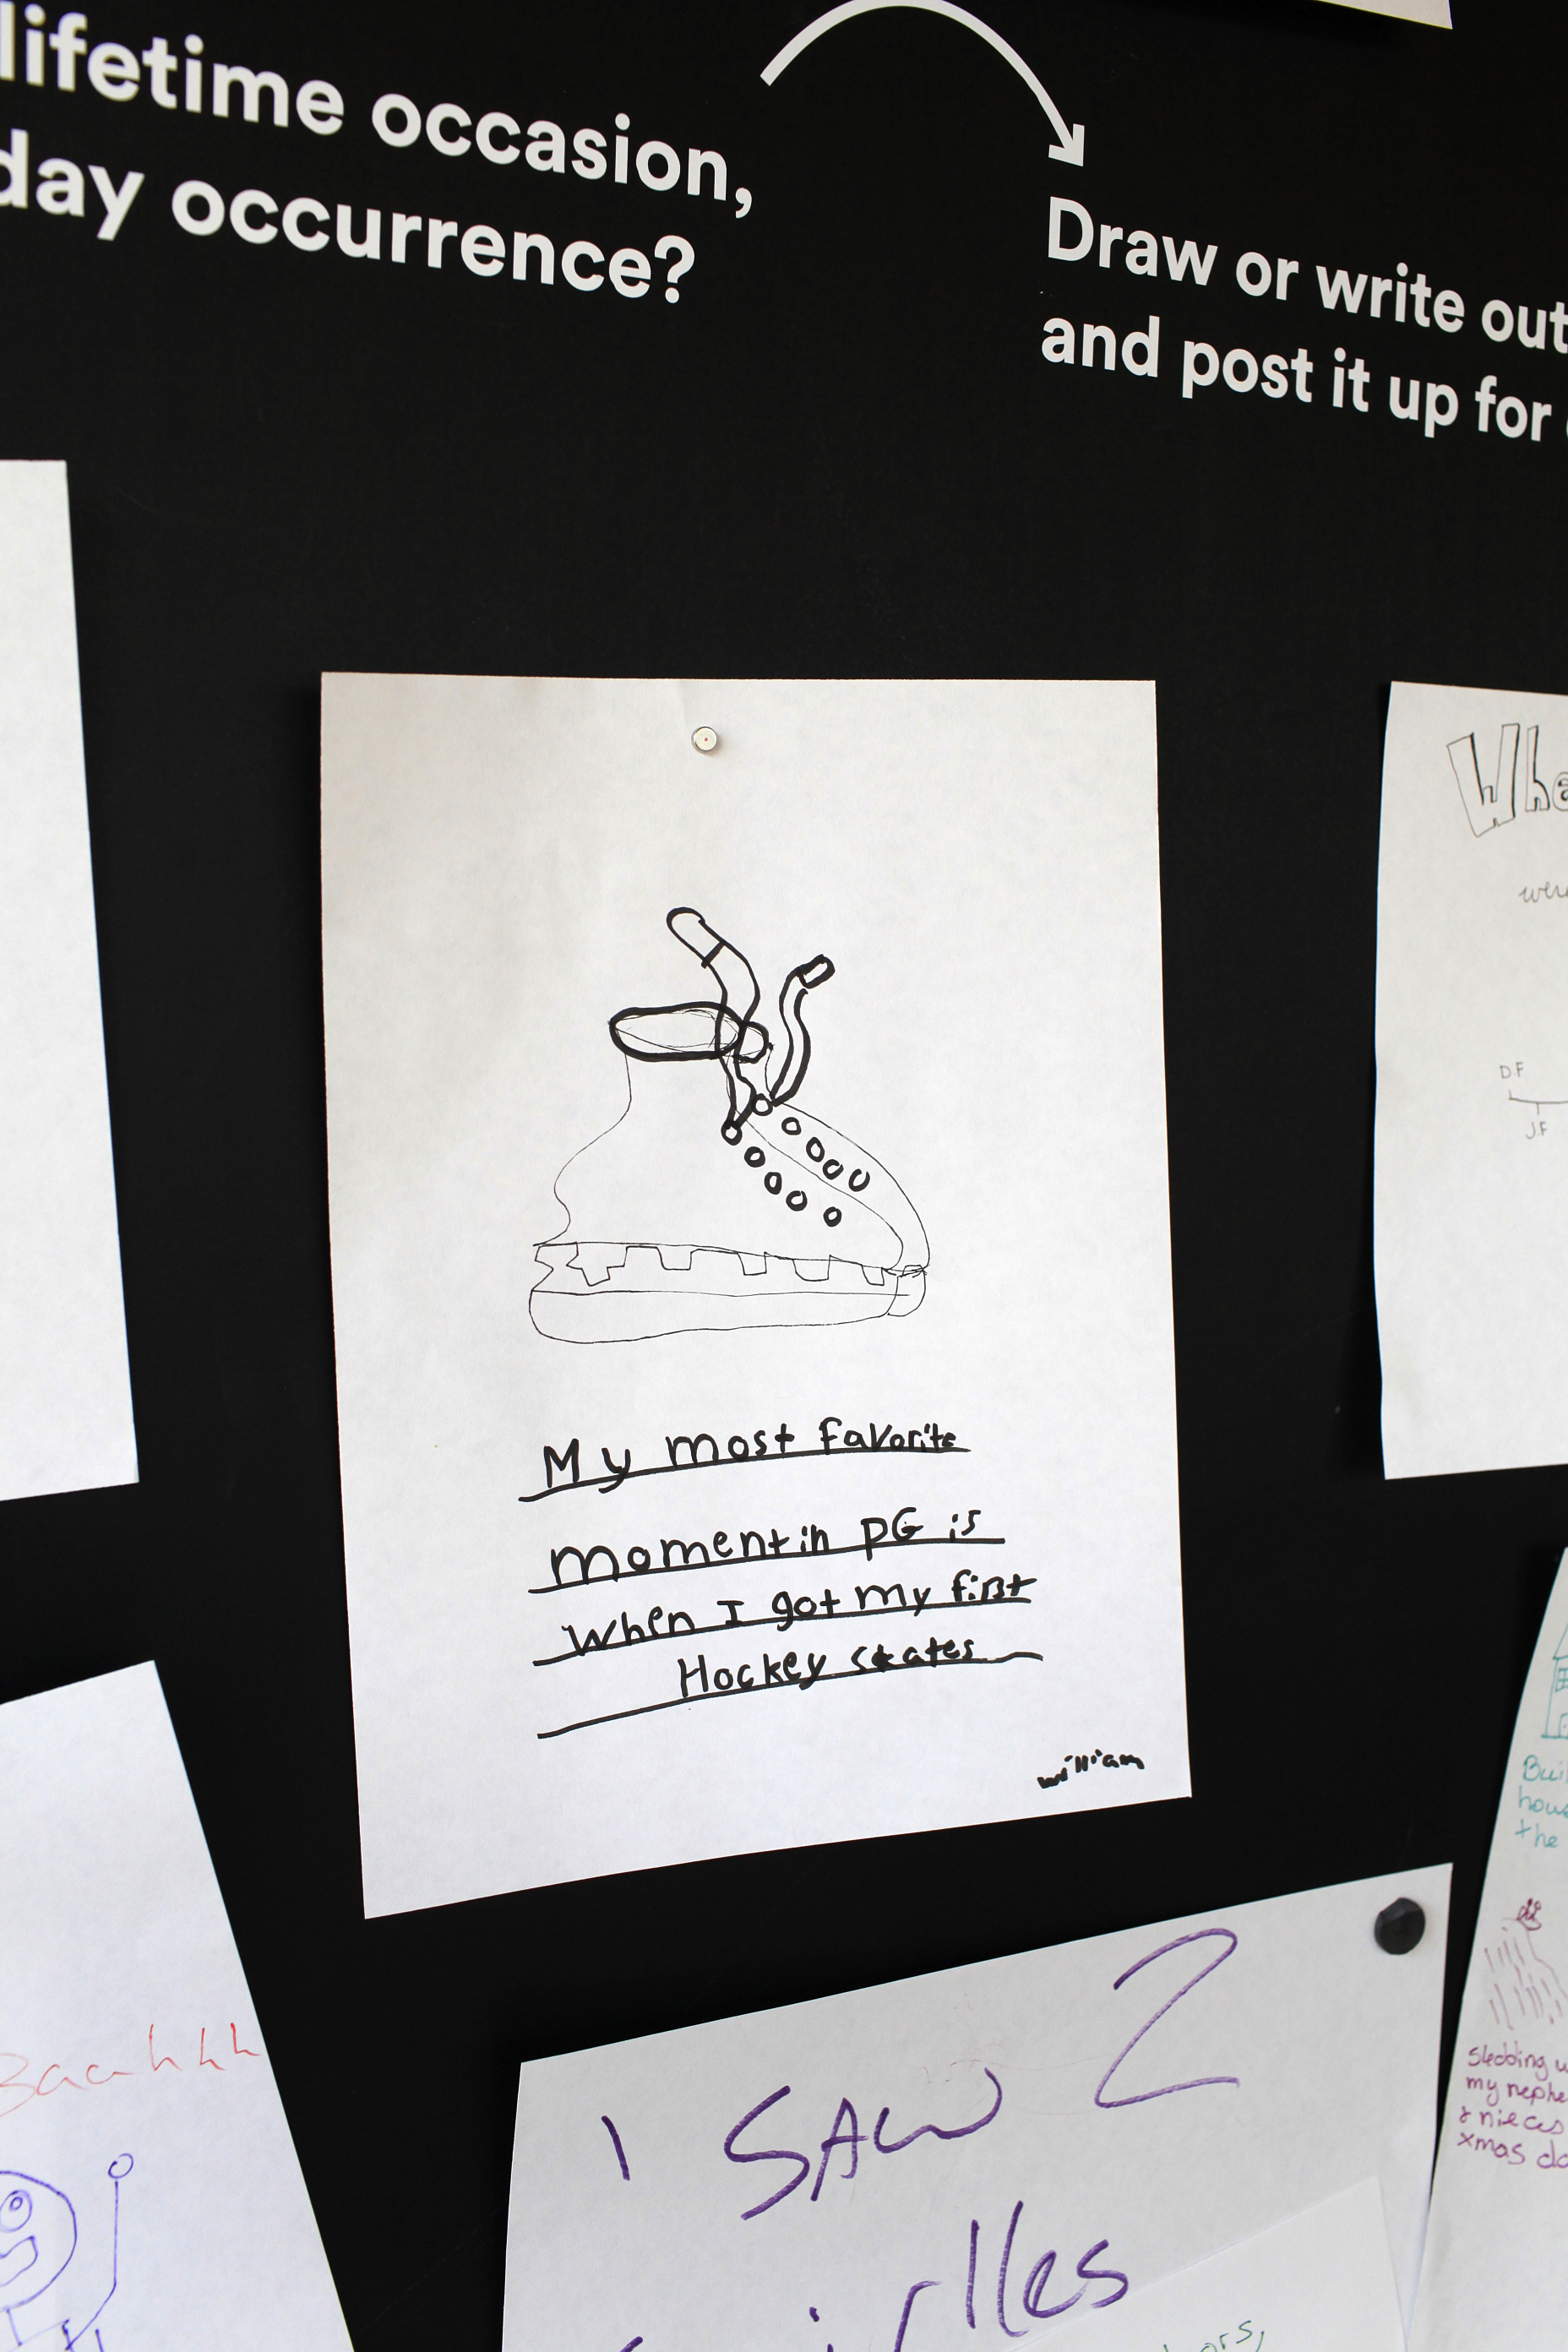 lifetime occasion,
day occurrence?
Draw or write out
and post it up for
Whe
were
D.F
J.F
My most favorite
moment in PG is
when I got my first
Hockey skates
william
Baahhh
I SAW 2
Buil
hous
the
Sledding w
my nephe
& nieces
xmas da
ors,